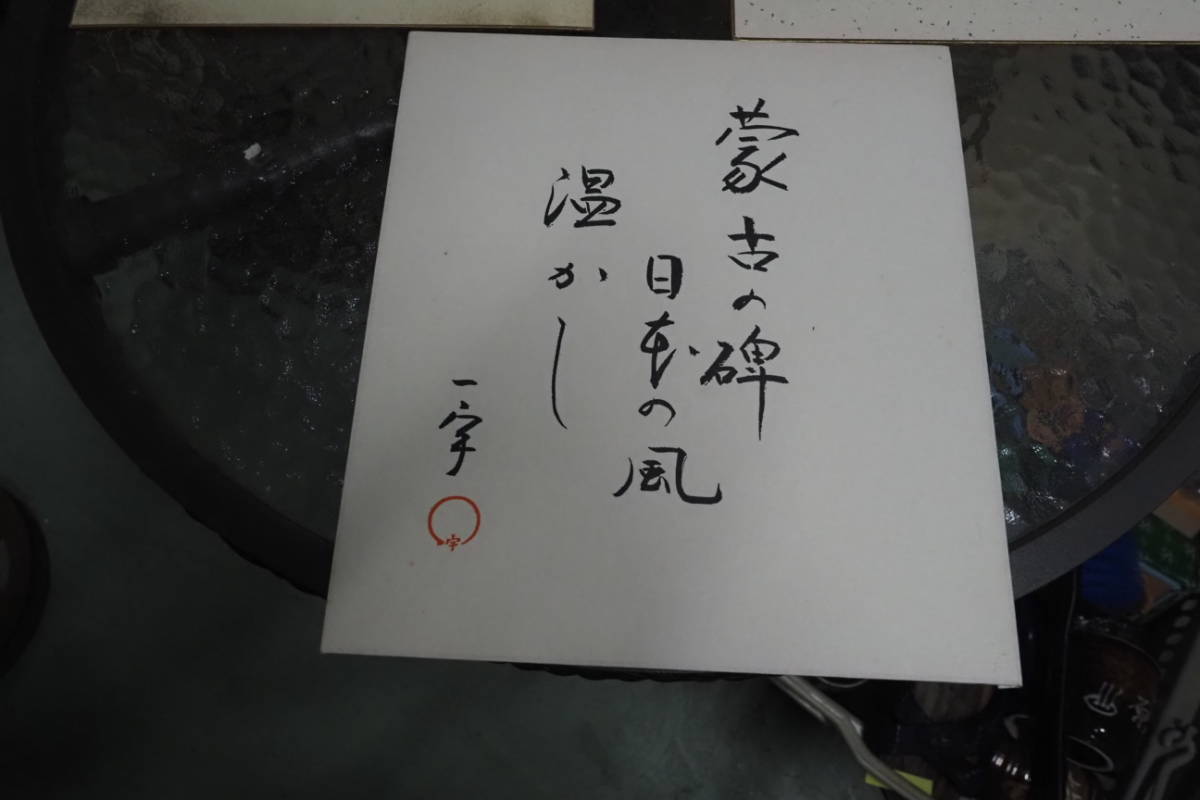 蒙古の碑
日本の風
温かし
一宇
宇